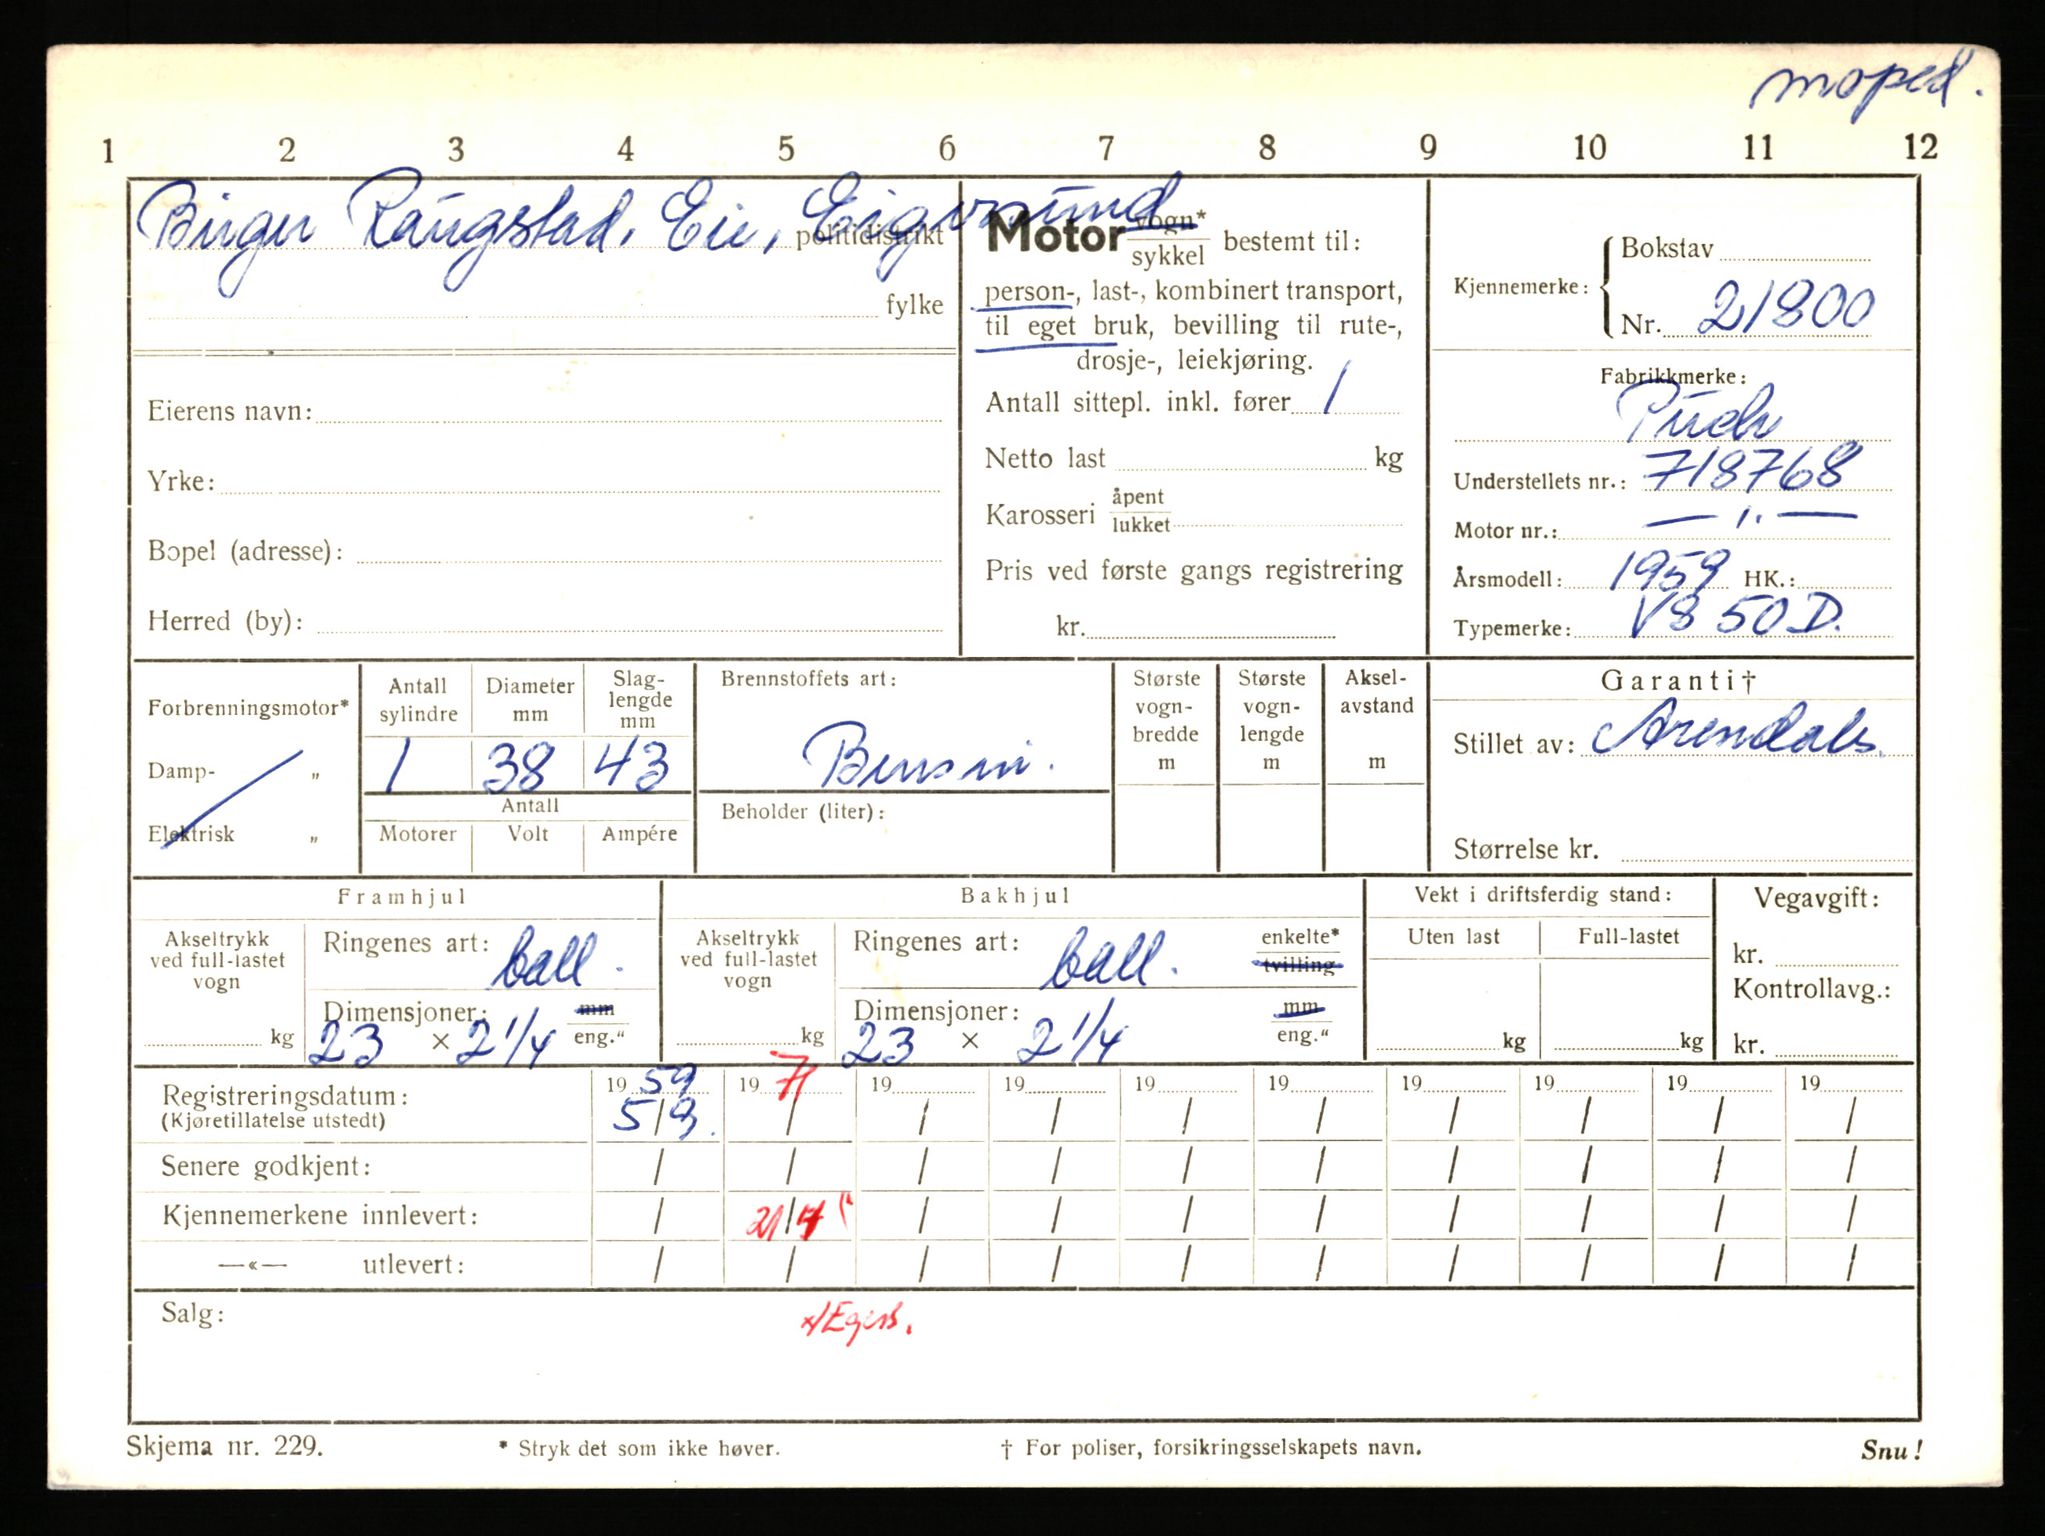 moped.
1 2 3 4 5 6 7 8 9 10 11 12
Birger Raugstad, Eie, Eigersund
politidistrikt
fylke
Eierens navn:
Yrke:
Bopel (adresse):
Herred (by):
Motor vogn* / sykkel bestemt til:
person-, last-, kombinert transport,
til eget bruk, bevilling til rute-,
drosje-, leiekjøring.
Antall sittepl. inkl. fører 1
Netto last kg
Karosseri åpent / lukket
Pris ved første gangs registrering
kr.
Kjennemerke: Bokstav
Nr. 21800
Fabrikkmerke:
Puch
Understellets nr.: 718768
Motor nr.: — " —
Årsmodell: 1959 HK.:
Typemerke: VS 50 D.
Forbrenningsmotor*
Damp- „
Elektrisk „
Antall sylindre
Diameter mm
Slag-lengde mm
1 38 43
Antall
Motorer Volt Ampére
Brennstoffets art:
Bensin.
Beholder (liter):
Største vogn-bredde m
Største vogn-lengde m
Aksel-avstand m
Garanti†
Stillet av: Arendals.
Størrelse kr.
Framhjul
Akseltrykk ved full-lastet vogn
kg
Ringenes art: ball.
Dimensjoner: mm / eng."
23 × 2 1/4
Bakhjul
Akseltrykk ved full-lastet vogn
kg
Ringenes art: ball. enkelte* / tvilling
Dimensjoner: mm / eng."
23 × 2 1/4
Vekt i driftsferdig stand:
Uten last Full-lastet
kg kg
Vegavgift:
kr.
Kontrollavg.:
kr.
Registreringsdatum: 19 59 19 71 19 19 19 19 19 19 19 19
(Kjøretillatelse utstedt) 5/9. / / / / / / / / /
Senere godkjent: / / / / / / / / / /
Kjennemerkene innlevert: / 21/4 / / / / / / / /
—«— utlevert: / / / / / / / / / /
Salg:
Skjema nr. 229.
* Stryk det som ikke høver.
† For poliser, forsikringsselskapets navn.
Snu!